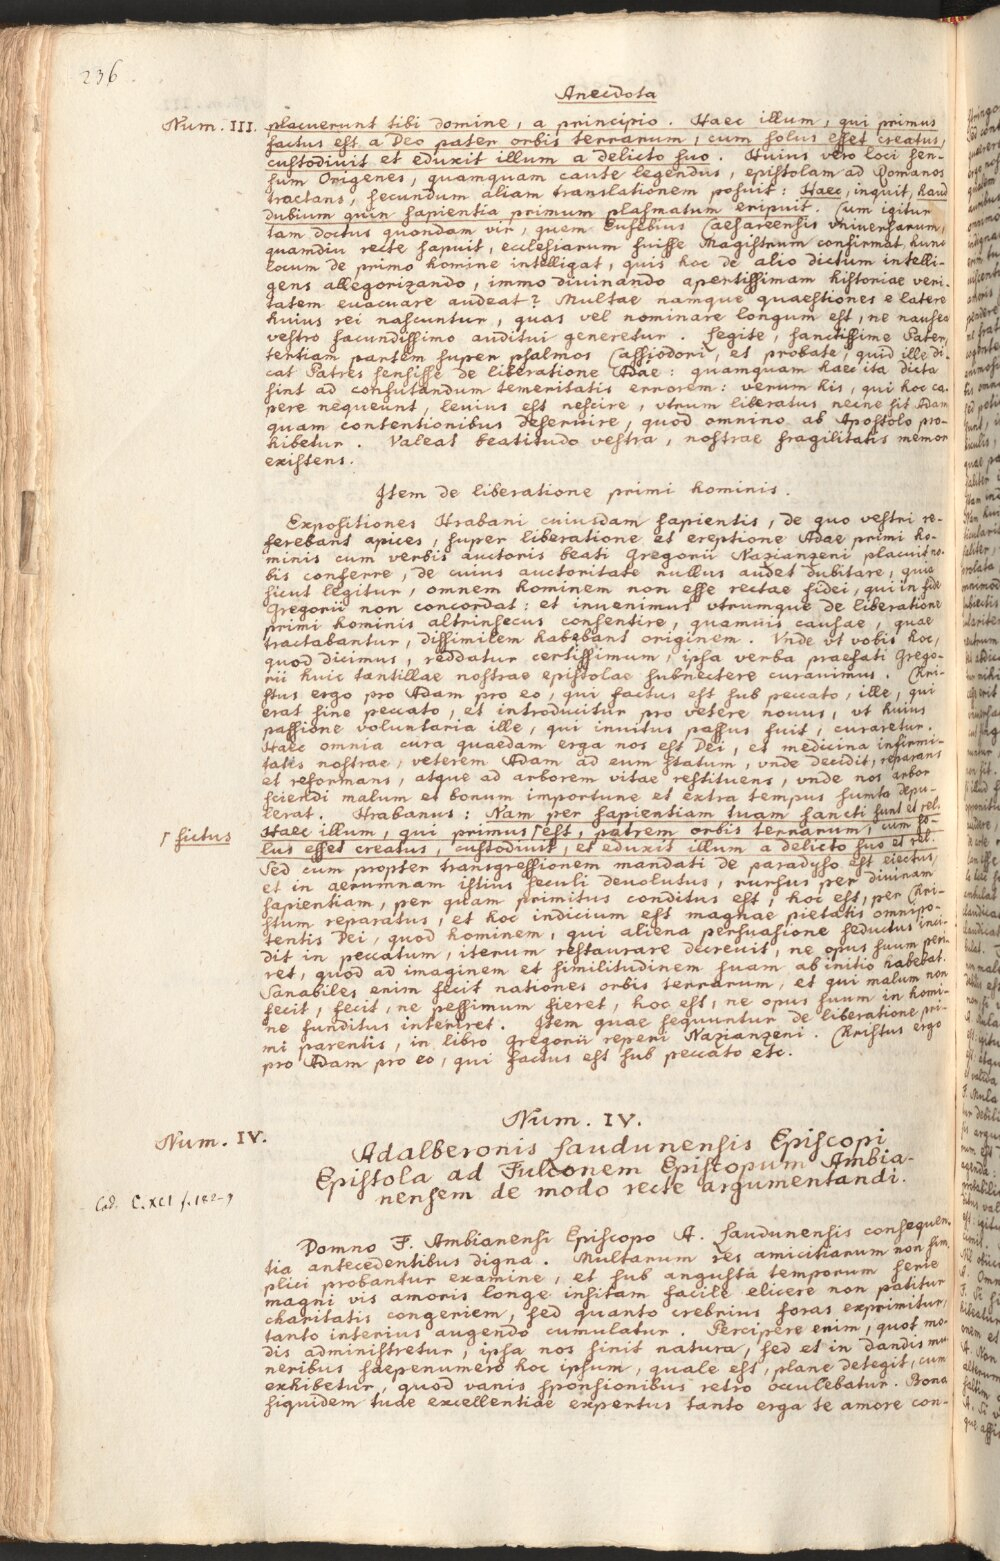 236
Anecdota
Num. III. placuerunt tibi domine, a principio. Haec illum, qui primus
factus est a Deo pater orbis terrarum, cum solus esset creatus,
custodiuit et eduxit illum a delicto suo. Huius vero loci sen-
sum Origenes, quamquam caute legendus, epistolam ad Romanos
tractans, secundum aliam translationem posuit: Haec, inquit, haud
dubium quin sapientia primum plasmatum eripuit. Cum igitur
tam doctus quondam vir, quem Eusebius Caesareensis vniuersarum,
quamdiu recte sapuit, ecclesiarum fuisse Magistrum confirmat, hunc
locum de primo homine intelligat, quis hoc de alio dictum intelli-
gens allegorizando, immo diuinando apertissimam historiae veri-
tatem euacuare audeat? Multae namque quaestiones e latere
huius rei nascuntur, quas vel nominare longum est, ne nausea
vestro facundissimo auditui generetur. Legite, sanctissime Pater,
tertiam partem super psalmos Cassiodori, et probate, quid ille di-
cat Patres sensisse de liberatione Adae: quamquam haec ita dicta
sint ad confutandum temeritatis errorem: verum his, qui hoc ca-
pere nequeunt, leuius est nescire, vtrum liberatus necne sit Adam
quam contentionibus deseruire, quod omnino ab Apostolo pro-
hibetur. Valeat beatitudo vestra, nostrae fragilitatis memor
existens.
Item de liberatione primi hominis.
Expositiones Hrabani cuiusdam sapientis, de quo vestri re-
ferebant apices, super liberatione et ereptione Adae primi ho-
minis cum verbis auctoris beati Gregorii Nazianzeni placuit no-
bis conferre, de cuius auctoritate nullus audet dubitare, quia
sicut legitur, omnem hominem non esse rectae fidei, qui in fide
Gregorii non concordat: et inuenimus vtrumque de liberatione
primi hominis altrinsecus consentire, quamuis causae, quae
tractabantur, dissimilem habebant originem. Vnde vt vobis hoc,
quod dicimus, reddatur certissimum, ipsa verba praefati Grego-
rii huic tantillae nostrae epistolae subnectere curauimus. Chri-
stus ergo pro Adam pro eo, qui factus est sub peccato, ille, qui
erat sine peccato, et introducitur pro vetere nouus, vt huius
passione voluntaria ille, qui inuitus passus fuit, curaretur.
Haec omnia cura quaedam erga nos est Dei, et medicina infirmi-
tatis nostrae, veterem Adam ad eum statum, vnde decidit, reparans
et reformans, atque ad arborem vitae restituens, vnde nos arbor
sciendi malum et bonum importune et extra tempus sumta depu-
lerat. Hrabanus: Nam per sapientiam tuam sancti sunt et rel.
Haec illum, qui primus ⌈ est, patrem orbis terrarum, cum so-
⌈ fictus
lus esset creatus, custodiuit, et eduxit illum a delicto suo et rel.
Sed cum propter transgressionem mandati de paradyso est eiectus,
et in aerumnam istius seculi deuolutus, rursus per diuinam
sapientiam, per quam primitus conditus est, hoc est, per Chri-
stum reparatus, et hoc indicium est magnae pietatis omnipo-
tentis Dei, quod hominem, qui aliena persuasione seductus inci-
dit in peccatum, iterum restaurare decreuit, ne opus suum peri-
ret, quod ad imaginem et similitudinem suam ab initio habebat.
Sanabiles enim fecit nationes orbis terrarum, et qui malum non
fecit, fecit, ne pessimum fieret, hoc est, ne opus suum in homi-
ne funditus interiret. Item quae sequuntur de liberatione pri-
mi parentis, in libro Gregorii reperi Nazianzeni. Christus ergo
pro Adam pro eo, qui factus est sub peccato etc.
Num. IV.
Num. IV.
Adalberonis Laudunensis Episcopi
Epistola ad Fulconem Episcopum Ambia-
nensem de modo recte argumentandi.
Cod. C. XCI f. 182-9
Domno F. Ambianensi Episcopo A. Laudunensis consequen-
tia antecedentibus digna. Multarum res amicitiarum non sim-
plici probantur examine, et sub angusta temporum serie
magni vis amoris longe insitam facile elicere non patitur
charitatis congeriem, sed quanto crebrius foras exprimitur,
tanto interius augendo cumulatur. Percipere enim, quot mo-
dis administretur, ipsa nos sinit natura, sed et in dandis mu-
neribus saepenumero hoc ipsum, quale est, plane detegit, cum
exhibetur, quod vanis sponsionibus retro occulebatur. Bona
siquidem tuae excellentiae expertus tanto erga te amore con-